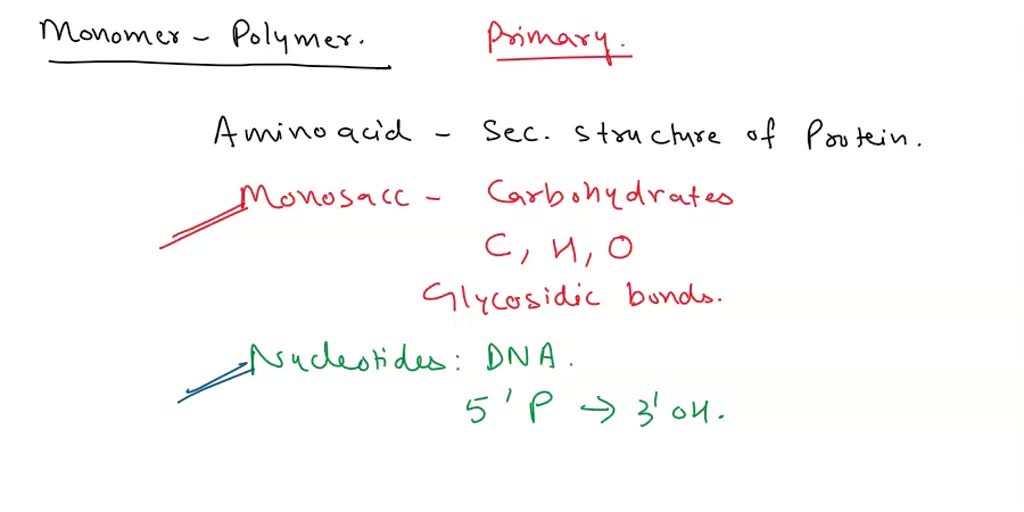 Monomer - Polymer. Primary.
Aminoacid - Sec. structure of Protein.
Monosacc - Carbohydrates
C, H, O
Glycosidic bonds.
Nucleotides: DNA.
5' P → 3' OH.